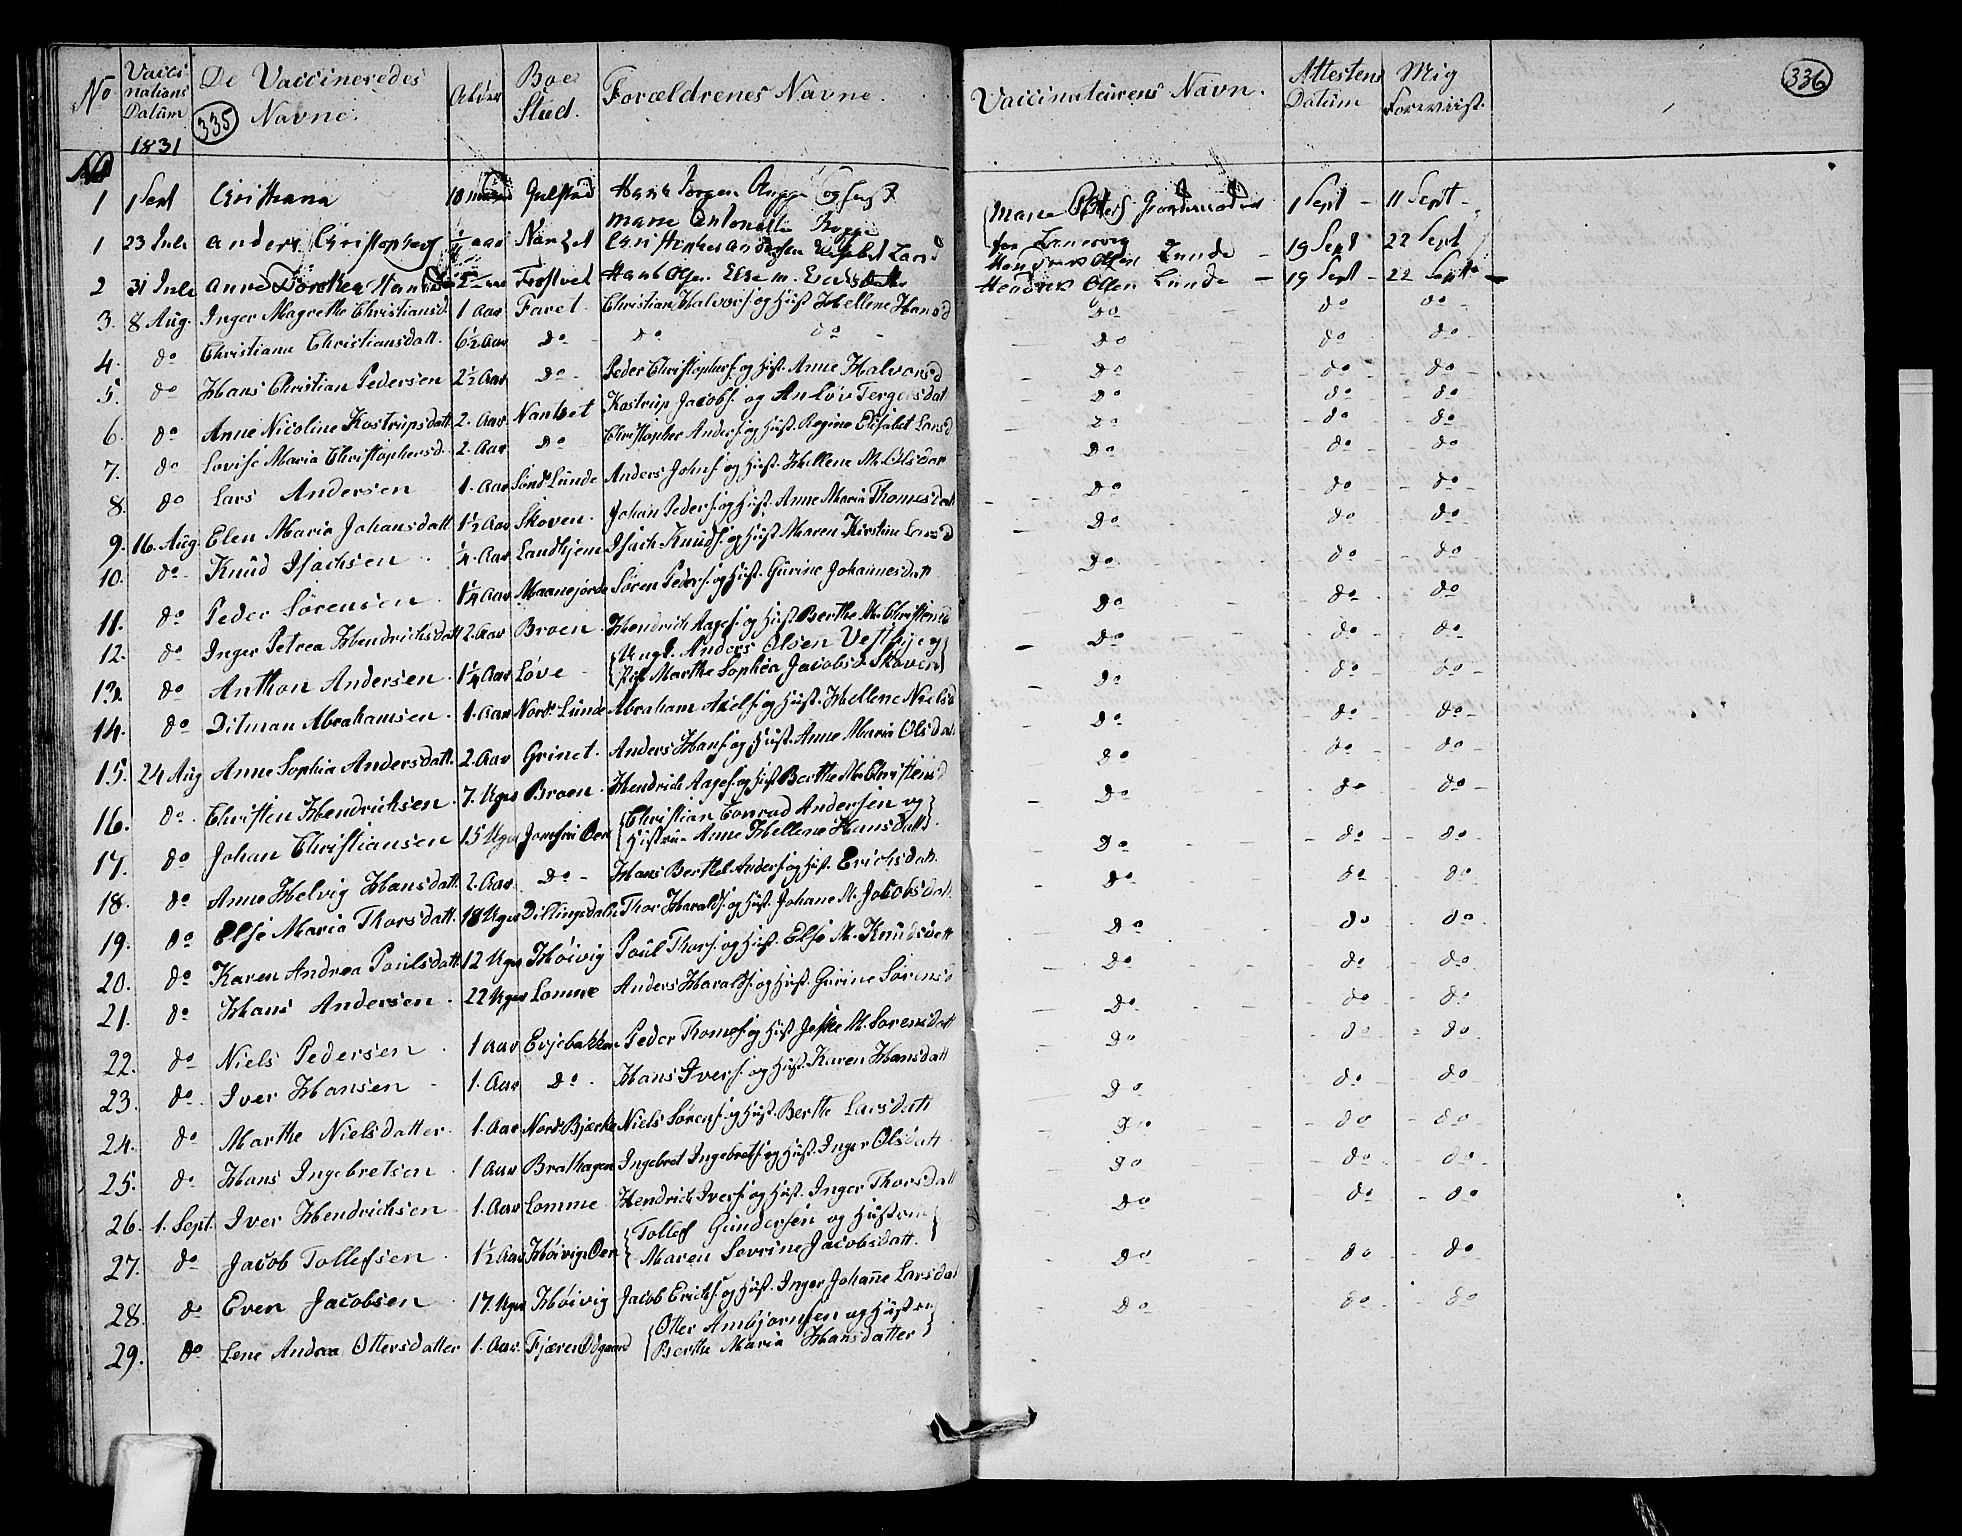 No Vacci nations Datum 1831 De Vaccineredes Navne. Alder Boe Stæd. Forældrenes Navne. Vaccinateurens Navn. Attestens Datum Mig Foreviist.
335
336
1 1 Sept Christiana 10 Gulstad Hans Jørgen og 1 Sept - 11 Sept -
Marie Antonette
1 23 Juli Anders Christophers aar Nanset Christopher Andersen for Laurvig 19 Sept 22 Sept
Hendrik Olsen Lunde -
2 31 Juli Anne Dorthea Frostvet Hans Olsen Else M. Hendrik Olsen Lunde - 19 Sept - 22 Sept
3. 8 Aug. Inger Magrethe Christiansd. 1 Aar Faret. Christian Halvors. og Hust. Hellene Hansd do do do
4. do Christiana Christiansdatt. 6½ Aar do do do do do do
5. do Hans Christian Pedersen 2½ Aar do Peder Christophers. og Hust. Anne Halvorsd do do do
6. do Anne Nicoline Kostrupsdatt. 2. Aar. Nanset Kostrup Jacobs. og An Løv Tergersdat do do do
7. do Lovise Maria Christophersd. 2. Aar do Christopher Anders. og Hust. Regine Elisabet Larsd do do do
8. do Lars Andersen 1. Aar Sønd. Lunde Anders Johns. og Hust. Hellene M. Olsdar do do do
9. 16. Aug. Elen Maria Johansdatt. 1½ Aar Skoven. Johan Peders. og Hust. Anne Maria Thomesdatt do do do
10. do Knud Isachsen ¼. Aar. Landhjem Isach Knuds. og Hust. Maren Kirstine Larsd do do do
11. do Peder Sørensen 1¼ Aar Maanejorde Søren Peders. og Hust. Gurine Johannesdatt do do do
12. do Inger Petrea Hendrichsdatt 2. Aar Broen. Hendrich Aages. og Hust. Berthe M. Christensd do do do
13. do Anthon Andersen. 1¼ Aar Løve Ungk. Anders Olsen Vesthye og
Pig. Marthe Sophia Jacobsd. Skoven do do do
14. do Ditman Abrahamsen. 1. Aar Nord. Lunde Abraham Axels. og Hust. Hellene Nielsd do do do
15. 24 Aug Anne Sophia Andersdatt. 2. Aar Grinet. Anders Hans. og Hust. Anne Maria Olsdat do do do
16. do Christen Hendrichsen. 7. Uger Broen. Hendrich Aages. og Hust. Berthe M. Christensd do do do
17. do Johan Christiansen 15 Uger Jomfru Øen Christian Conrad Andersen og
Hustrue Anne Hellene Hansdatt. do do do
18. do Anne Helvig Hansdatt. 2. Aar. do Hans Berthel Anders. og Hust. Erichsdatt. do do do
19. do Else Maria Thorsdatt. 18 Uger Dillingsdalen Thor Haralds. og Hust. Johane M. Jacobsdatt. do do do
20. do Karen Andrea Poulsdatt. 12 Uger Høivig Poul Thors. og Hust. Else M. Knudsdatt do do do
21. do Hans Andersen. 22 Uger Lomme Anders Haralds. og Hust. Gurine Sørensd do do do
22. do Niels Pedersen 1 Aar Evjebakken Peder Thomes. og Hust. Jeske M. Sorensdatt do do do
23. do Iver Hansen 1. Aar do Hans Ivers. og Hust. Karen Hansdatt do do do
24. do Marthe Nielsdatter. 1. Aar Nord. Bjerke Niels Sørens. og Hust. Berthe Larsdatt do do do
25. do Hans Ingebretsen 1 Aar Brathagen Ingebret Ingebrets. og Hust. Inger Olsdatt do do do
26. 1. Sept. Iver Hendrichsen. 1. Aar Lomme Hendrich Ivers. og Hust. Inger Thorsdatt do do do
27. do Jacob Tollefsen 1½ Aar Høivig Øen Tollef Gundersen og Hustrue
Maren Sevrine Jacobsdatt. do do do
28. do Even Jacobsen 17. Uger Høivig Jacob Erichs. og Hust. Inger Johanne Larsdat do do do
29. do Lene Andrea Ottersdatter 1. Aar. Fjæren Odgaard Otter Ambjørnsen og Hustrue
Berthe Maria Hansdatter